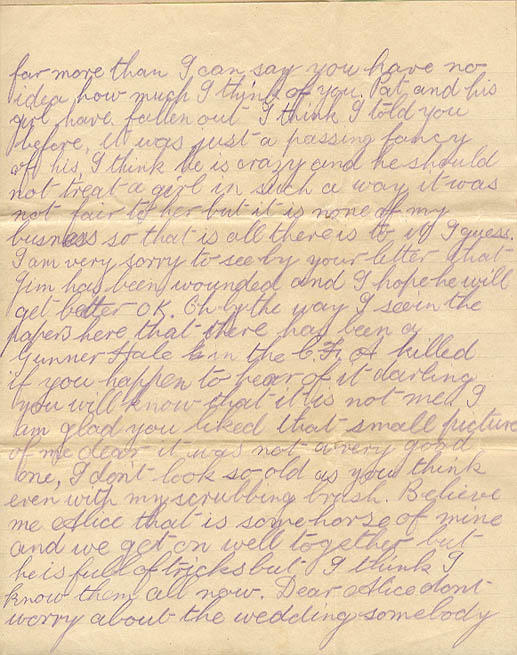 far more than I can say you have no
idea how much I think of you. Pat, and his
girl have fallen out I think I told you
before, it was just a passing fancy
of his, I think he is crazy and he should
not treat a girl in such a way it was
not fair to her but it is none of my
business so that is all there is to it I guess.
I am very sorry to see by your letter that
Jim has been wounded and I hope he will
get better OK. Oh by the way I see in the
papers here that there has been a
Gunner Hale in the C.F.A killed
if you happen to hear of it darling
you will know that it is not me. I
am glad you liked that small picture
of me dear it was not a very good
one, I don't look so old as you think
even with my scrubbing brush. Believe
me Alice that is some horse of mine
and we get on well together but
he is full of tricks but I think I
know them all now. Dear Alice dont
worry about the wedding somebody